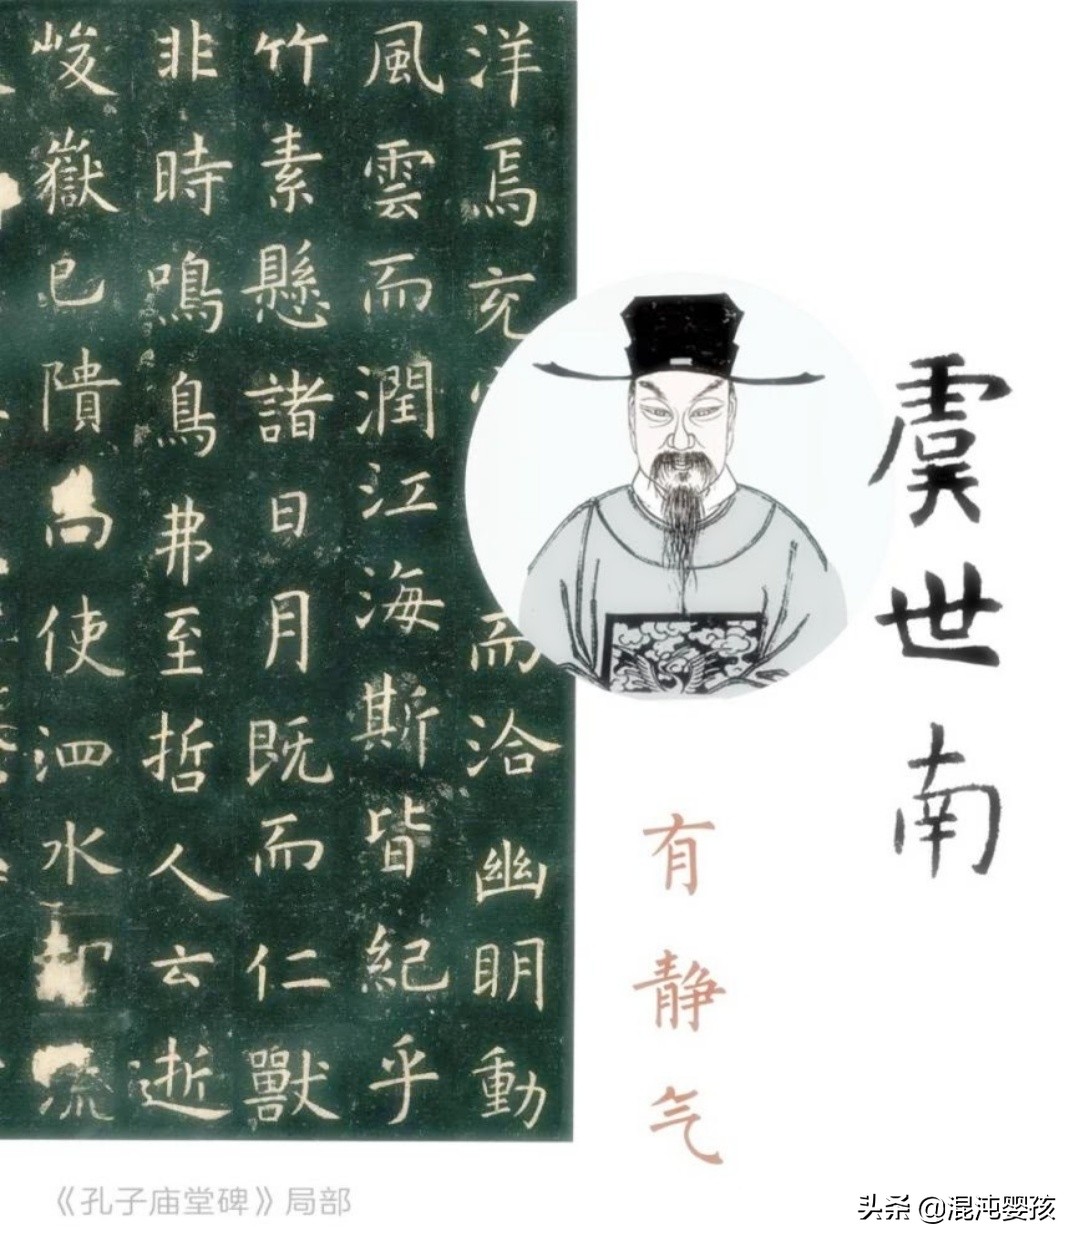 洋焉充而洽幽明動
風雲而潤江海斯皆紀乎
竹素懸諸日月既而仁獸
非時鳴鳥弗至哲人云逝
峻嶽已隤尚使泗水却流
虞世南
有静气
《孔子庙堂碑》局部
头条 @混沌婴孩